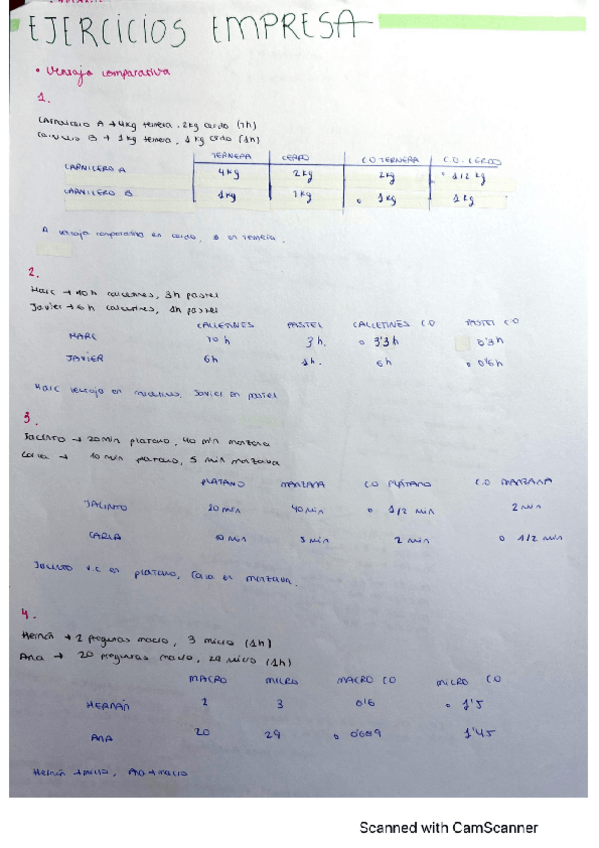 EJERCICIOS EMPRESA
• Ventaja comparativa
1.
Carnicero A → 4kg ternera, 2kg cerdo (1h)
Carnicero B → 1kg ternera, 1kg cerdo (1h)
TERNERA CERDO C.O TERNERA C.O. CERDO
CARNICERO A 4kg 2kg 2kg 1/2 kg
CARNICERO B 1kg 1kg 1kg 1kg
A ventaja comparativa en cerdo, B en ternera.
2.
Marc → 10h calcetines, 3h pastel
Javier → 6h calcetines, 1h pastel
CALCETINES PASTEL CALCETINES C.O PASTEL C.O
MARC 10 h 3 h. 3'3 h h
JAVIER 6h 1h. 6h 0'6h
Marc ventaja en calcetines, Javier en pastel
3.
Jacinto → 20 min platano, 40 min manzana
Carla → 10 min platano, 5 min manzana
PLATANO MANZANA C.O PLÁTANO C.O MANZANA
JACINTO 20 min 40 min 1/2 min 2 min
CARLA 10 min 5 min 2 min 1/2 min
Jacinto v.c en platano, en manzana.
4.
Hernán → 2 preguntas macro, 3 micro (1h)
Ana → 20 preguntas macro, 29 micro (1h)
MACRO MICRO MACRO CO MICRO CO
HERNÁN 2 3 0'6 1'5
ANA 20 29 1'45
Hernán → micro, Ana → macro
Scanned with CamScanner